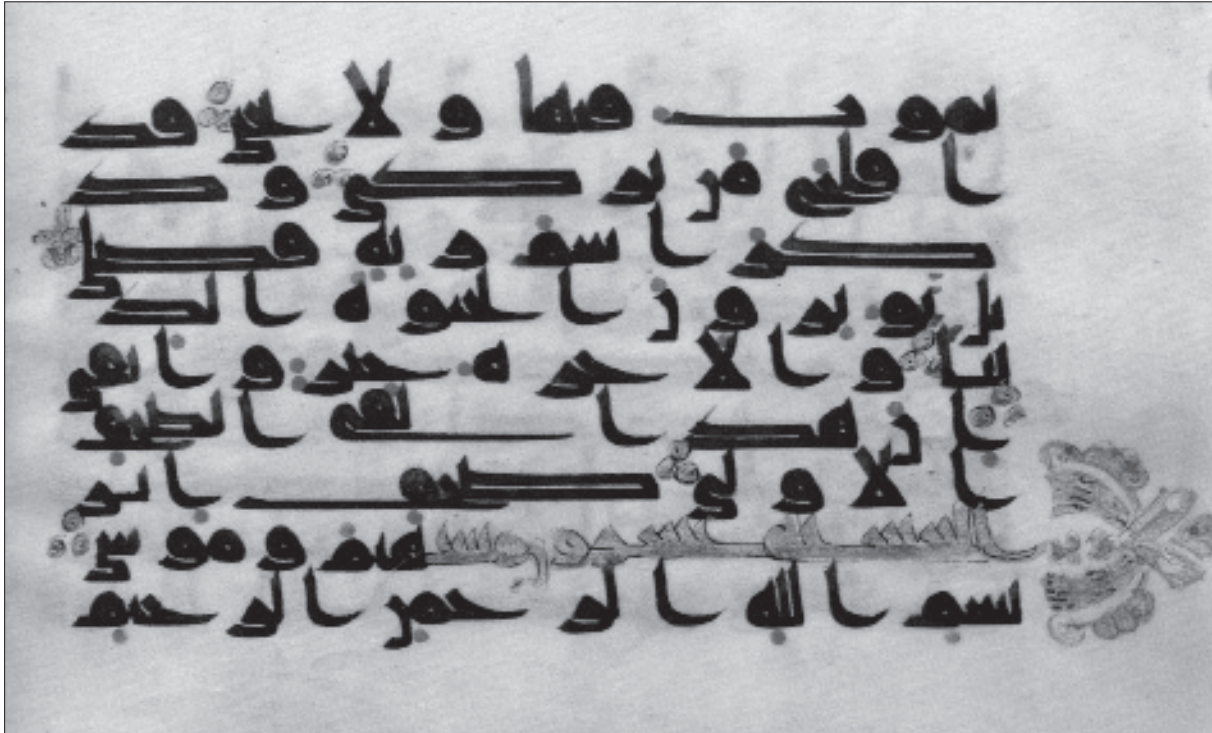 يموت فيها ولا يحيى قد
افلح من تزكى وذ
كر اسم ربه فصلى
بل تؤثرون الحيوة الد
نيا والاخرة خير وابقى
ان هذا لفى الصحف
الاولى صحف ابر
هيم وموسى
بسم الله الرحمن الرحيم